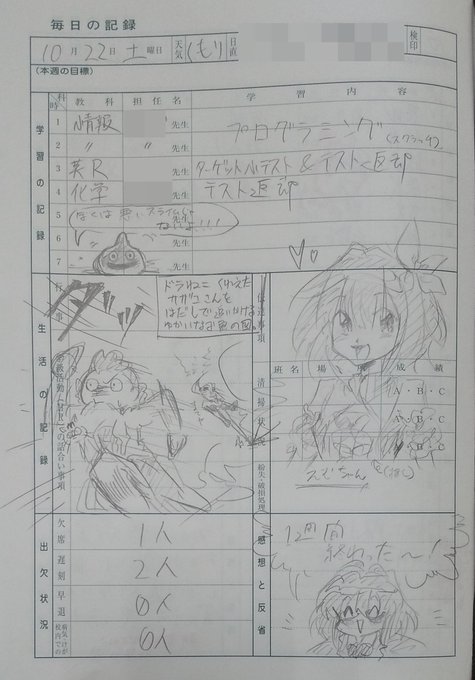 毎日の記録
10月22日 土曜日 天気 くもり 日直 検印
(本週の目標)
学習の記録
科時 教科 担任名 学習内容
1 情報 先生 プログラミング(スクラッチ)
2 〃 〃 先生
3 英R 先生 ターゲット小テスト&テスト返却
4 化学 先生 テスト返却
5 ぼくは悪いスライムじゃないよ!!! 先生
6 先生
7 先生
生活の記録
行事
ダッ
ドラねこ くわえた
サザエさんを
はだしで追いかける
ゆかいなお魚の図。
学級活動「LHR」での話合い事項
伝達事項
清掃状況
班名 場所 成績
A・B・C
A・B・C
A・B・C
紛失・破損処理
スズちゃん
出欠状況
欠席 1人
遅刻 2人
早退 0人
病気けが校内での 0人
感想と反省
1週間
終わった〜!